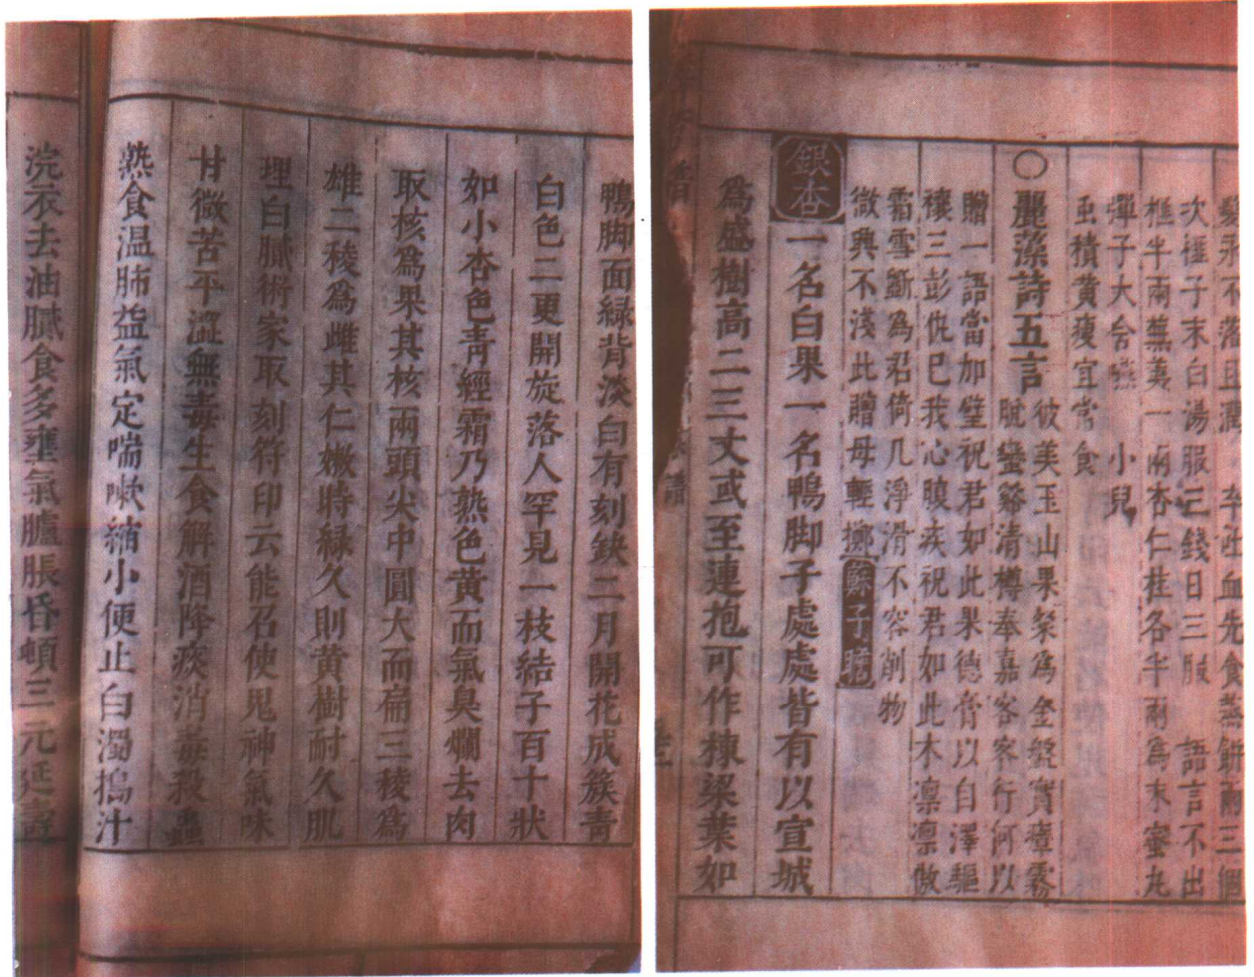 髮永不落且潤 卒吐血先食蒸餅兩三個
次榧子末白湯服三錢日三服 語言不出
榧半兩蕪荑一兩杏仁桂各半兩爲末蜜丸
彈子大含嚥 小兒
虫積黄瘦宜常食
○麗藻詩五言 彼美玉山果粲爲金盤實瘴霧
脫蠻谿清樽奉嘉客客行何以
贈一語當加璧祝君如此果德膏以自澤驅
攘三彭仇已我心腹疾祝君如此木凛凛傲
霜雪斲爲君倚几淨滑不容削物
微興不淺此贈毋輕擲蘇子瞻
銀杏一名白果一名鴨脚子處處皆有以宣城
爲盛樹高二三丈或至連抱可作棟梁葉如
鴨脚面緑背淡白有刻缺二月開花成簇青
白色二更開旋落人罕見一枝結子百十狀
如小杏色青經霜乃熟色黄而氣臭爛去肉
取核爲果其核兩頭尖中圓大而扁三稜爲
雄二稜爲雌其仁嫩時緑久則黄樹耐久肌
理白膩術家取刻符印云能召使鬼神氣味
甘微苦平澀無毒生食解酒降痰消毒殺蟲
熟食温肺益氣定喘嗽縮小便止白濁搗汁
浣衣去油膩食多壅氣臚脹昏頓三元延壽